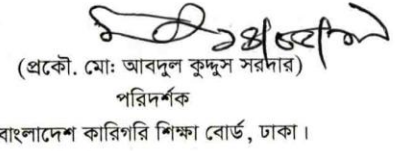 (প্রকৌ. মো: আবদুল কুদ্দুস সরদার)
পরিদর্শক
বাংলাদেশ কারিগরি শিক্ষা বোর্ড, ঢাকা।